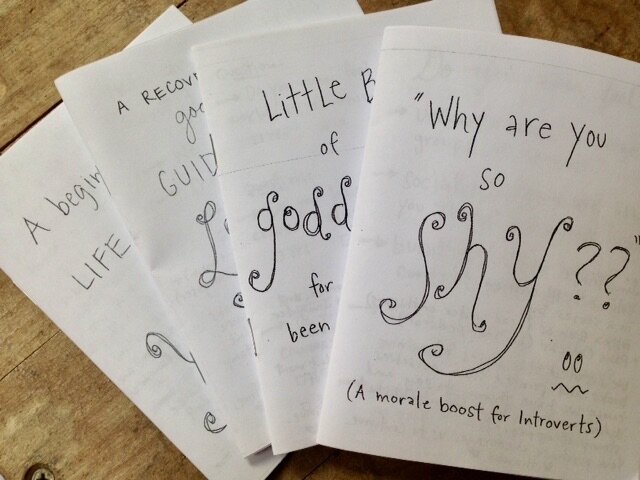 A begin
LIFE
A RECOV
GUID
LittLE B
of
godd
for
been
"Why are you
so
shy??"
(A morale boost for Introverts)